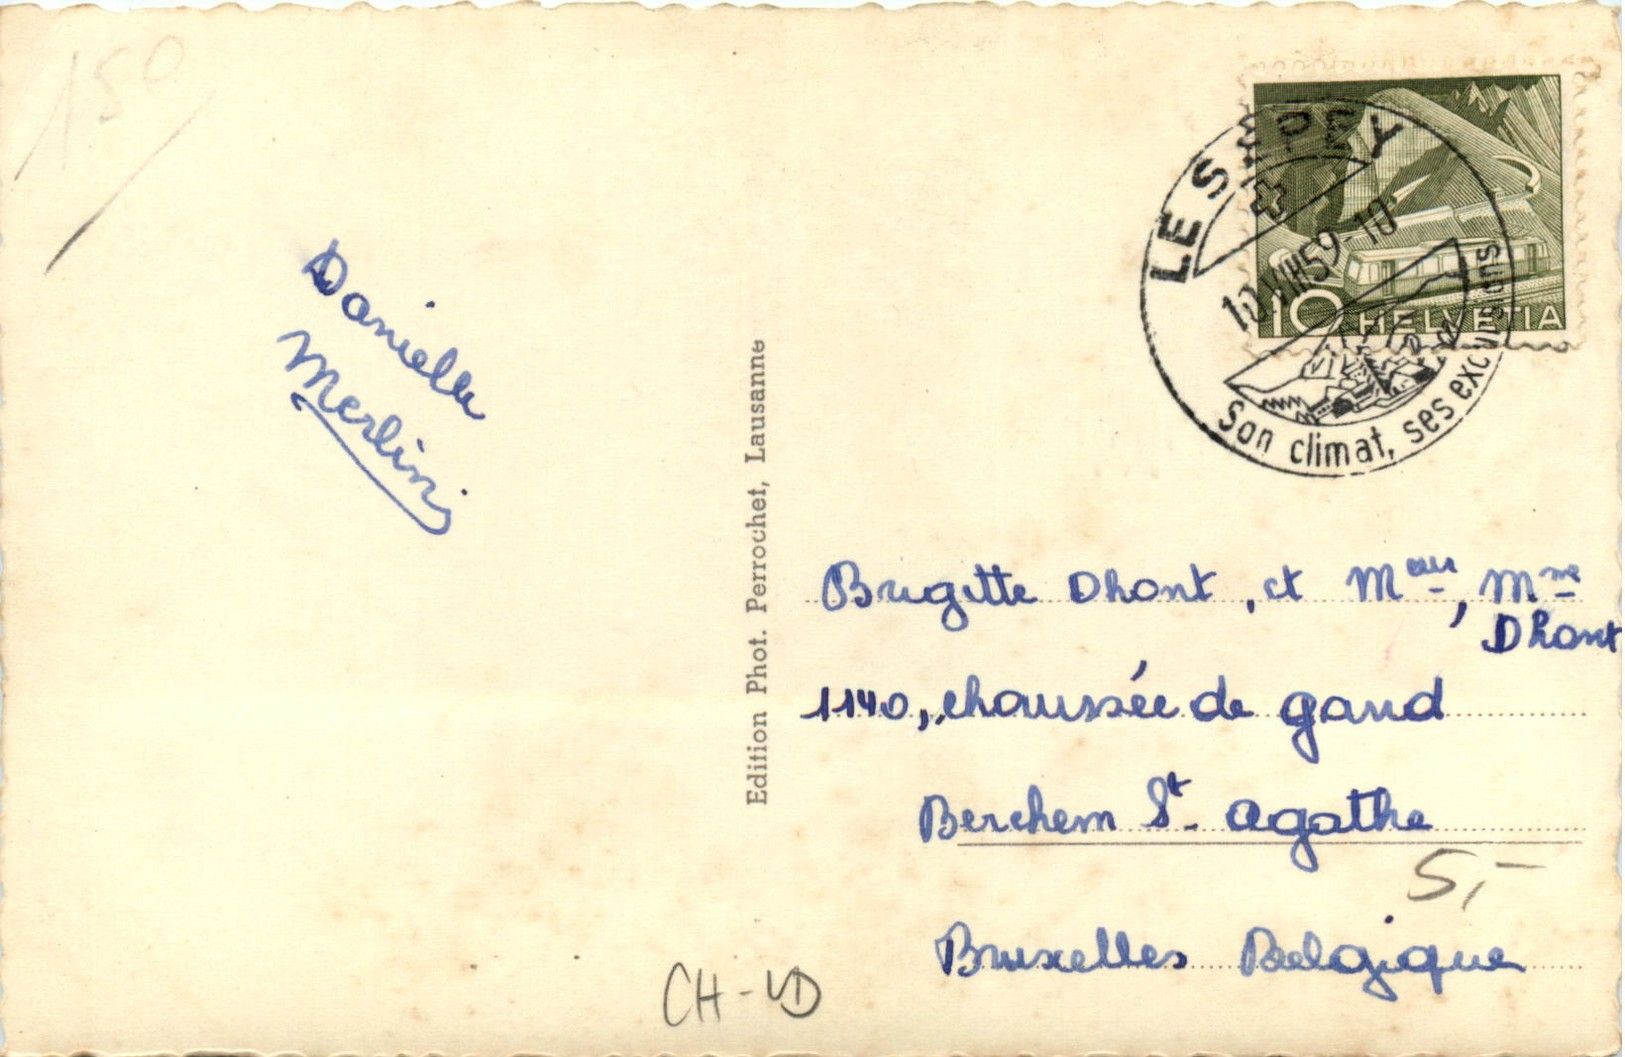 150
Danielle
Merlin
Edition Phot. Perrochet, Lausanne
LES
10 VIII 59-10
Son climat, ses excursions
10 HELVETIA
Brigitte Dhont, et Meur, Mme
Dhont
1140, chaussée de gand
Berchem St. Agathe
5,-
Bruxelles Belgique
CH-VD